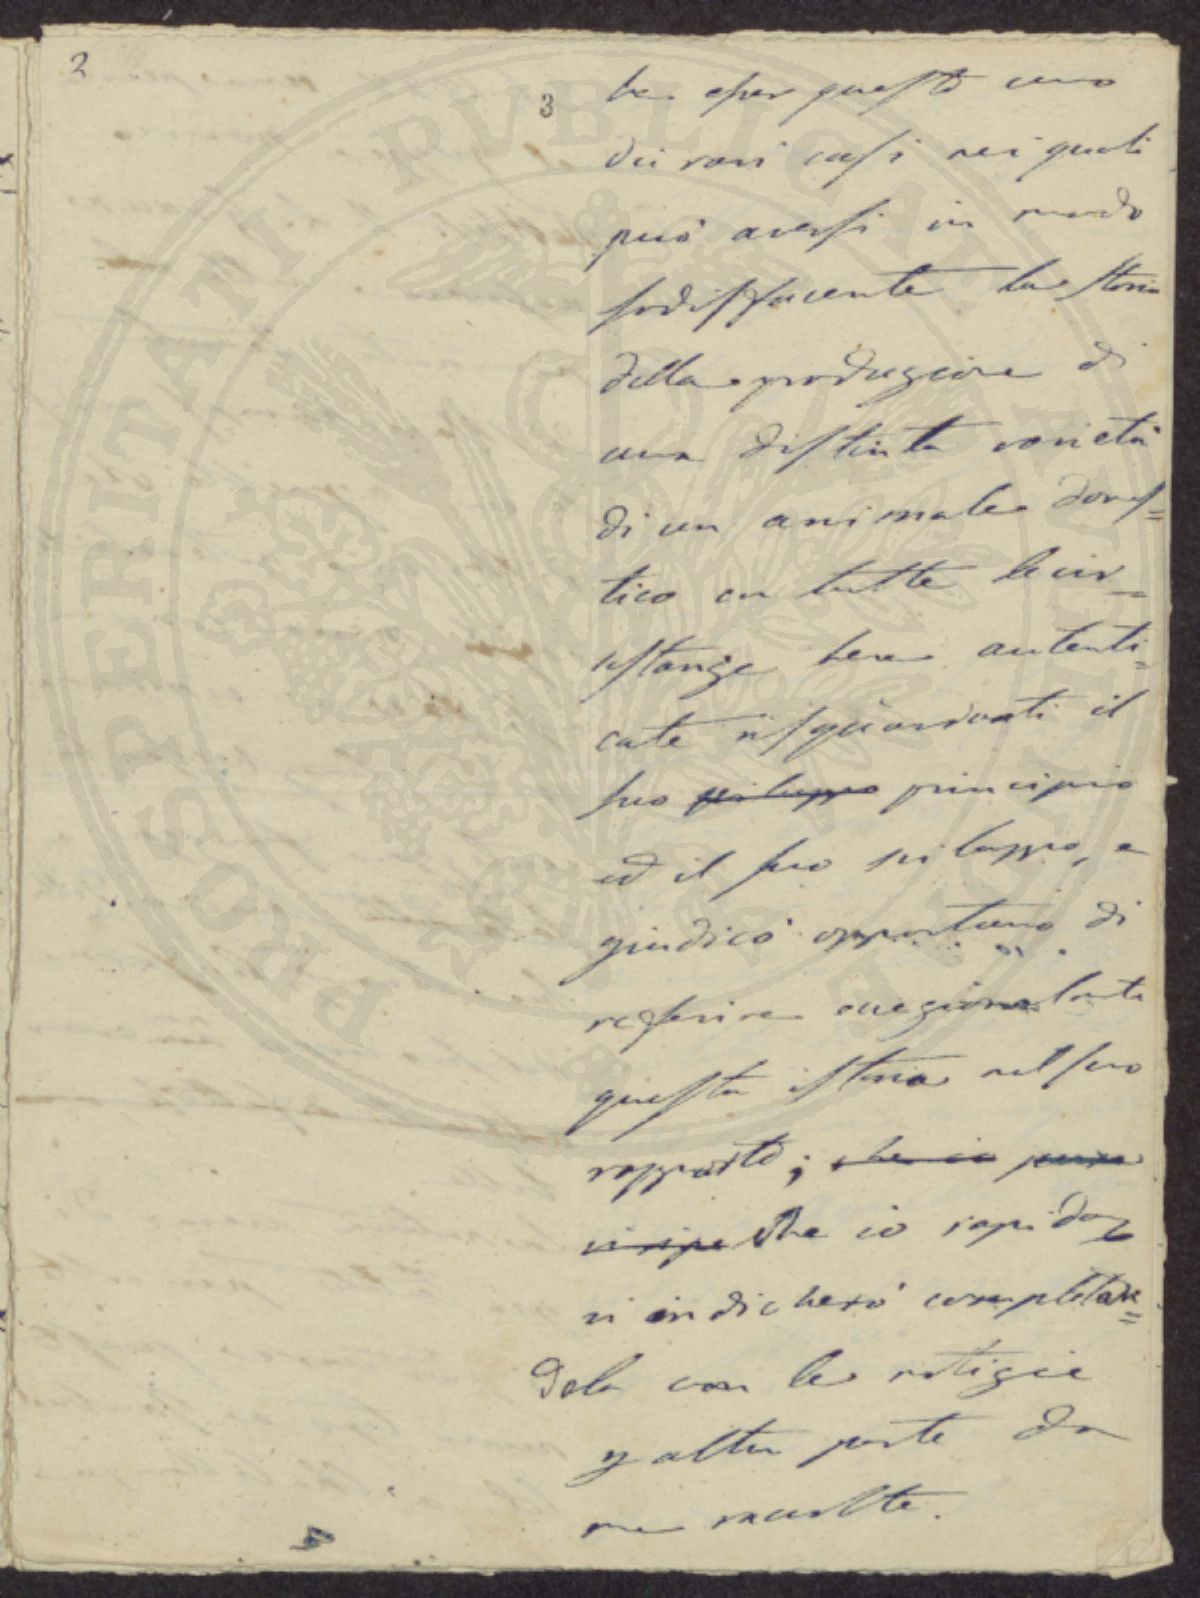 2
3
ha esser questo uno
dei rari casi nei quali
può aversi in modo
sodisfacente la storia
della produzione di
una distinta varietà
di un animale domes=
tico con tutte le cir=
costanze bene autenti=
cate risguardanti il
suo sviluppo principio
ed il suo sviluppo, e
giudicò opportuno di
referire
questa istoria nel suo
rapporto; che io
che io rapida
vi indicherò completan=
dola con le notizie
altra parte da
me raccolte.
PROSPERITATI PVBLICAE AVGENDAE